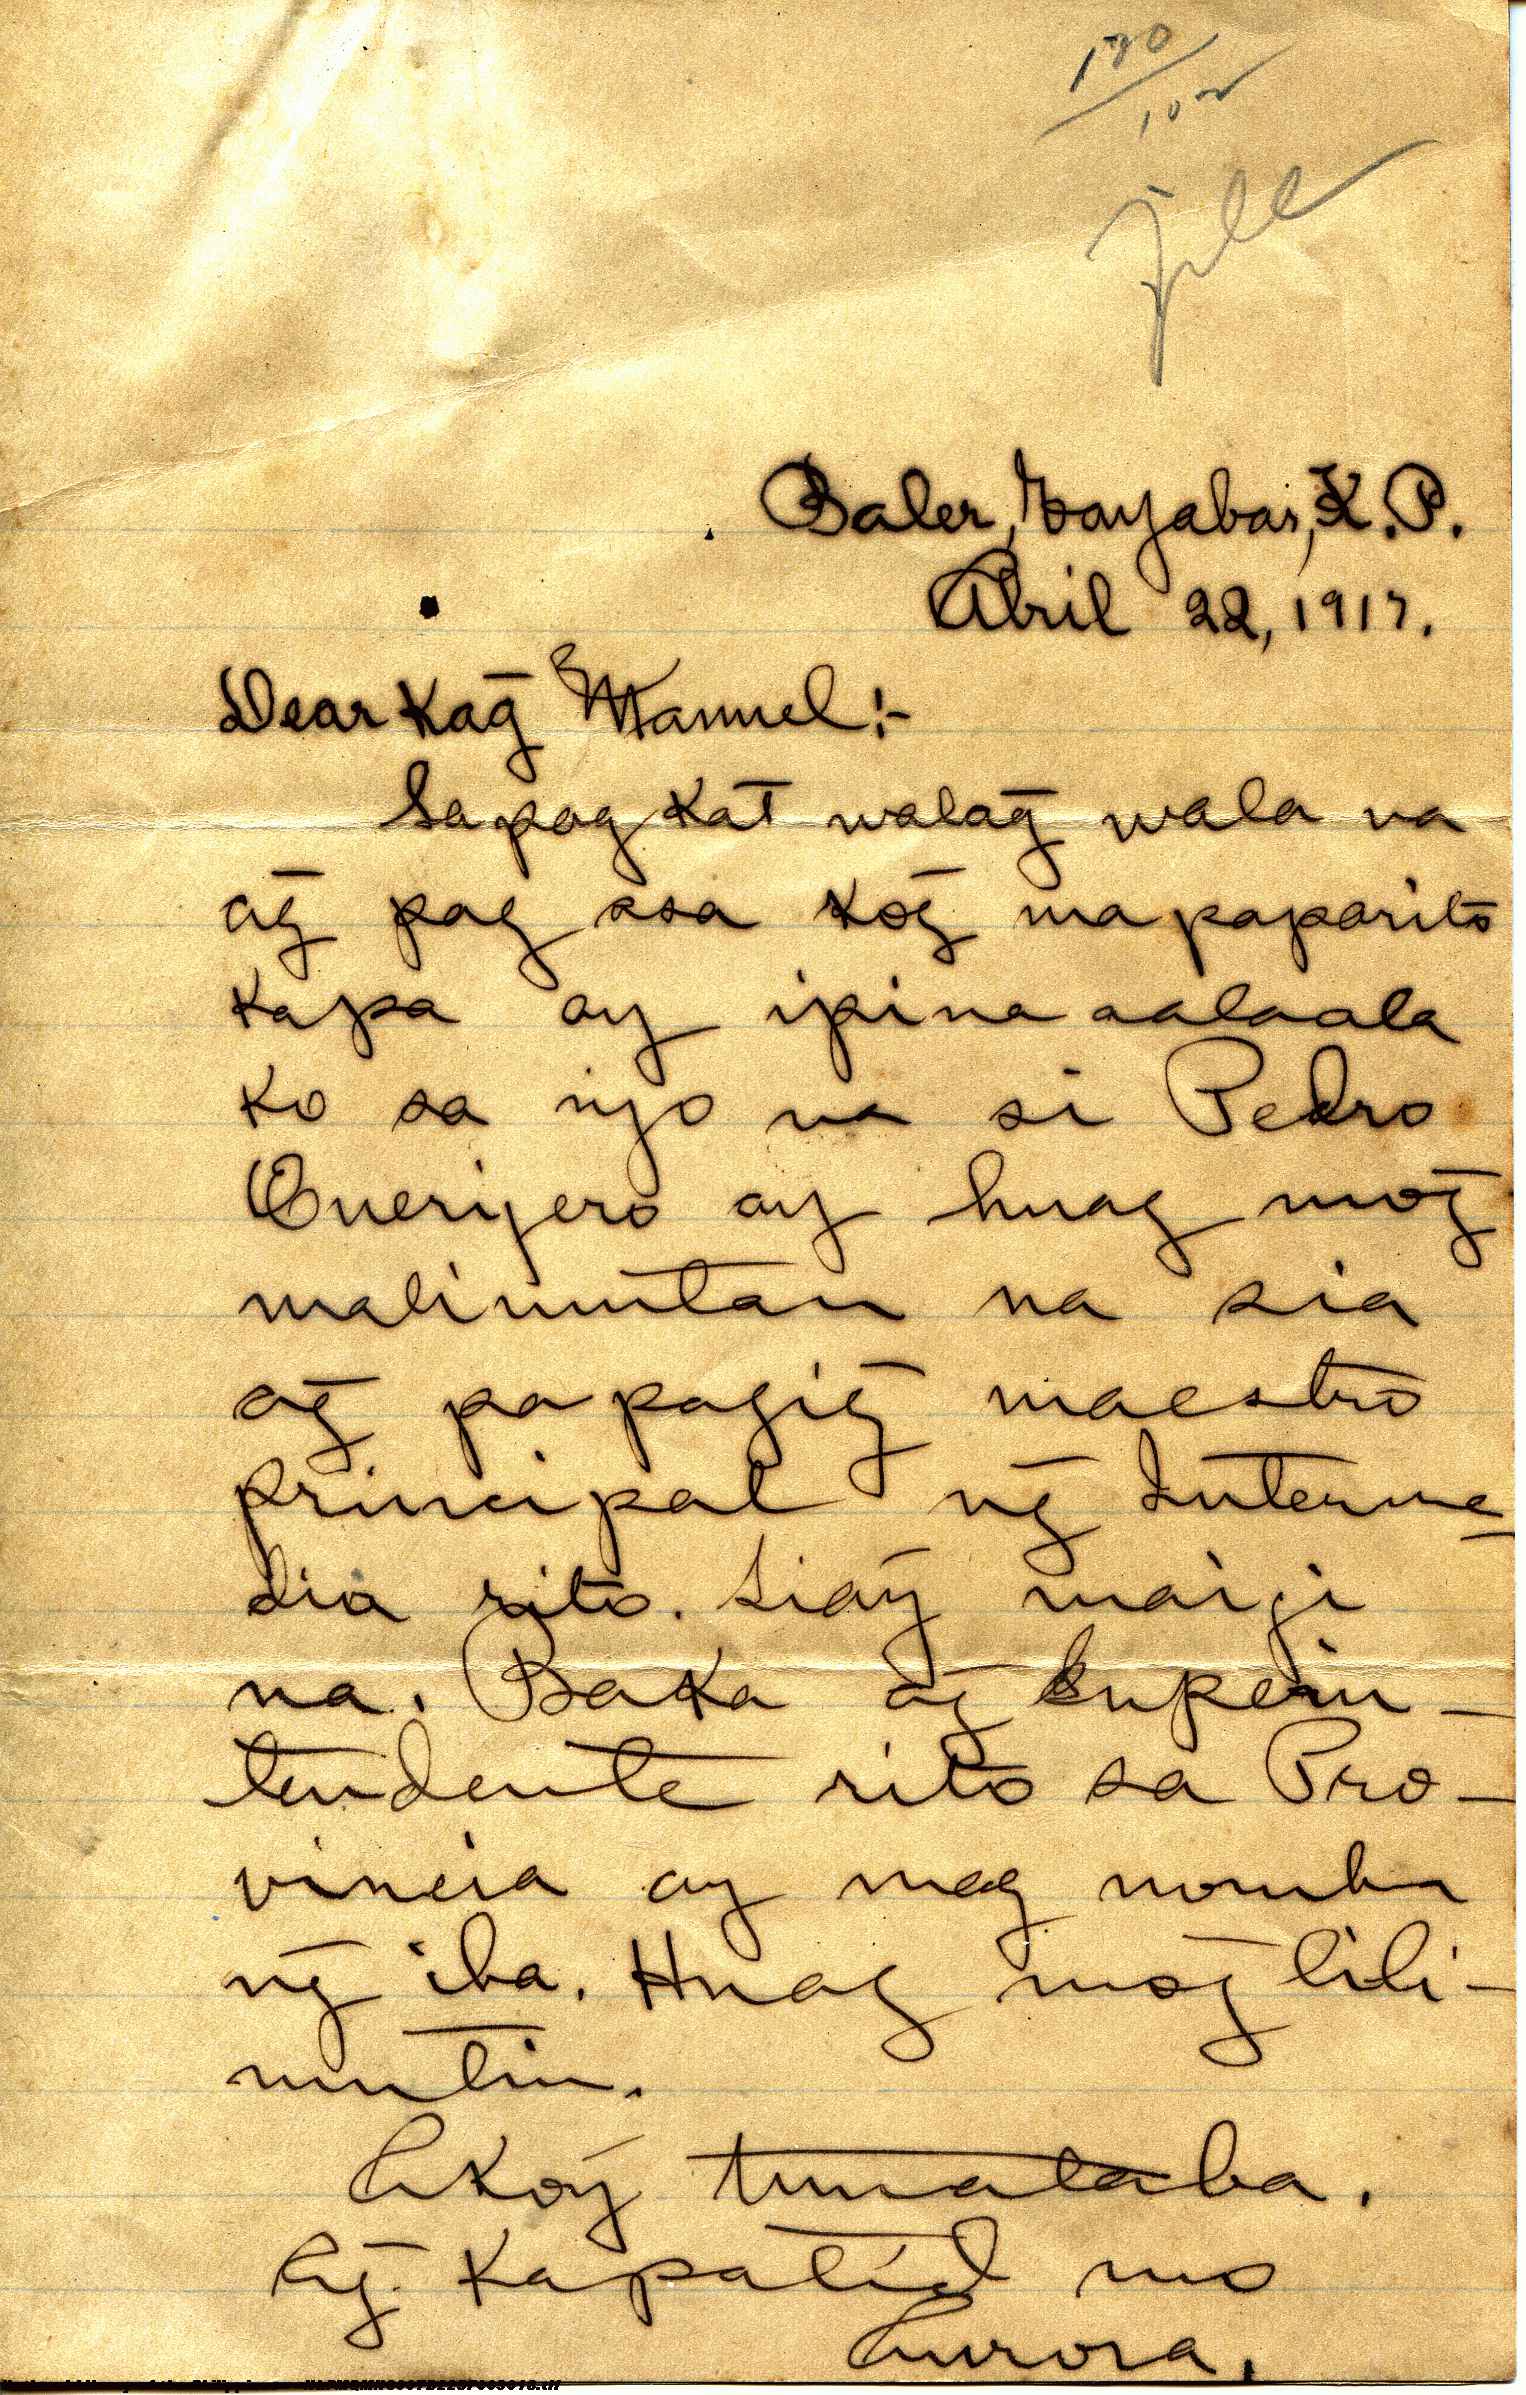 180
102
File
Baler, Tayabas, K.P.
Abril 22, 1917.
Dear Kag̃ Manuel:-
Sapag kat walag̃ wala na
ag̃ pag asa kog̃ ma paparito
kapa ay ipina aalaala
ko sa iyo na si Pedro
Guerijero ay huag mog̃
malimutan na sia
ag̃ pa pagig̃ maestro
principal ng̃ Interme
dia rito. Siaÿ maigi
na. Baka ag̃ Superin-
tendente rito sa Pro-
vincia ay mag nombra
ng̃ iba. Huag mog̃ lili-
mutin.
Akoÿ tumataba.
Ag̃ kapatid mo
Aurora.